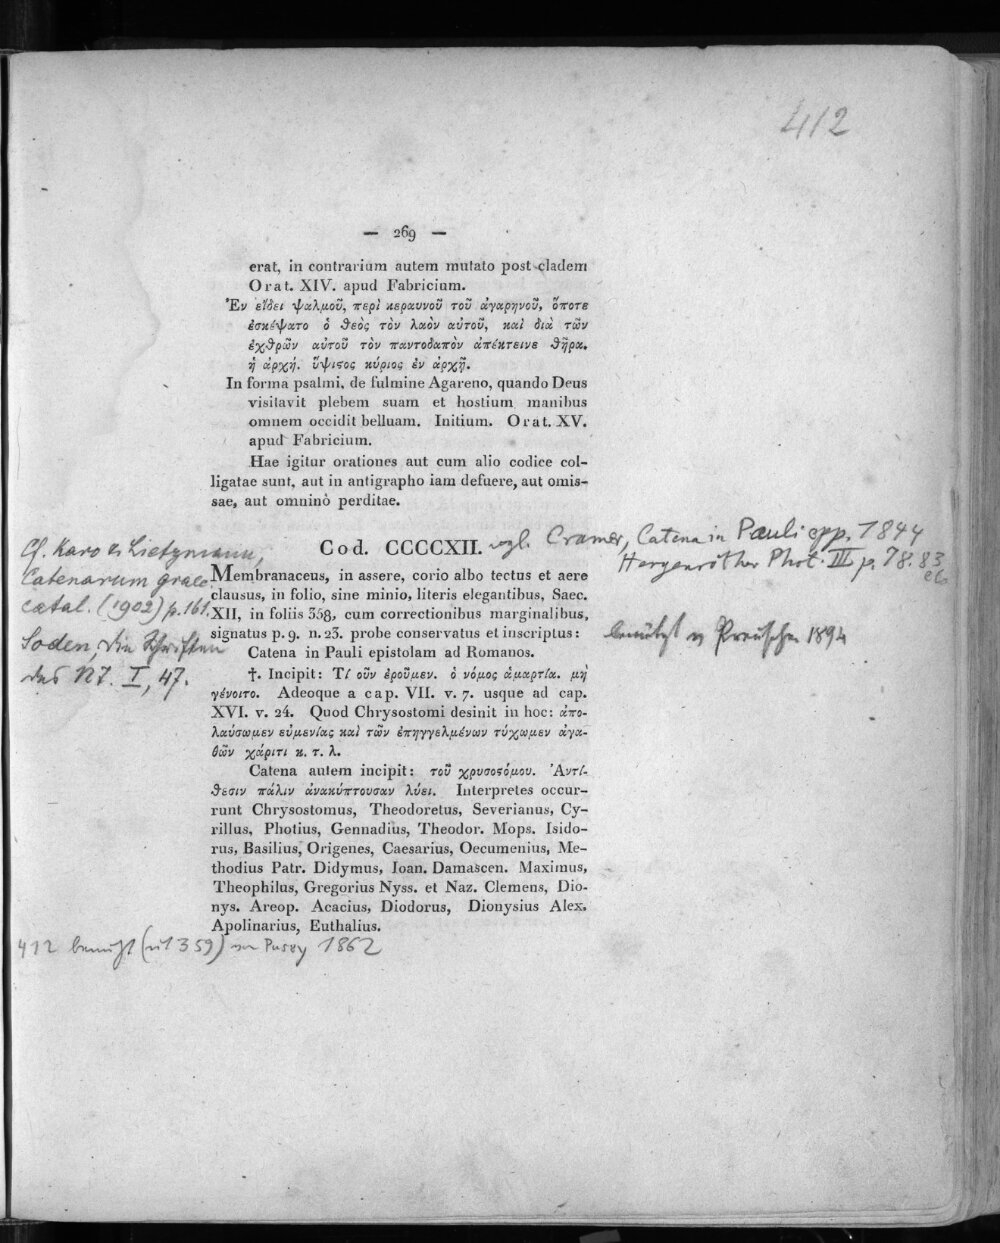 412
— 269 —
erat, in contrarium autem mutato post cladem
Orat. XIV. apud Fabricium.
Ἐν εἴδει ψαλμοῦ, περὶ κεραυνοῦ τοῦ ἀγαρηνοῦ, ὅποτε
ἐσκέψατο ὁ θεὸς τὸν λαὸν αὑτοῦ, καὶ διὰ τῶν
ἐχθρῶν αὑτοῦ τὸν παντοδαπὸν ἀπέκτεινε θῆρα.
ἡ ἀρχή. ὕψιςος κύριος ἐν ἀρχῇ.
In forma psalmi, de fulmine Agareno, quando Deus
visitavit plebem suam et hostium manibus
omnem occidit belluam. Initium. Orat. XV.
apud Fabricium.
Hae igitur orationes aut cum alio codice col-
ligatae sunt, aut in antigrapho iam defuere, aut omis-
sae, aut omninò perditae.
Cod. CCCCXII. vgl. Cramer, Catena in Pauli epp. 1844
Hergenröther Phot. III p. 78. 83
etc
Cf. Karo et Lietzmann,
Catenarum graec.
catal. (1902) p. 161.
Soden, Die Schriften
des NT. I, 47.
Membranaceus, in assere, corio albo tectus et aere
clausus, in folio, sine minio, literis elegantibus, Saec.
XII, in foliis 358, cum correctionibus marginalibus,
signatus p. 9. n. 23. probe conservatus et inscriptus:
benützt 1894
Catena in Pauli epistolam ad Romanos.
†. Incipit: Τί οὖν ἐροῦμεν. ὁ νόμος ἁμαρτία. μὴ
γένοιτο. Adeoque a cap. VII. v. 7. usque ad cap.
XVI. v. 24. Quod Chrysostomi desinit in hoc: ἀπο-
λαύσωμεν εὐμενίας καὶ τῶν ἐπηγγελμένων τύχωμεν ἀγα-
θῶν χάριτι κ. τ. λ.
Catena autem incipit: τοῦ χρυσοςόμου. Ἀντί-
θεσιν πάλιν ἀνακύπτουσαν λύει. Interpretes occur-
runt Chrysostomus, Theodoretus, Severianus, Cy-
rillus, Photius, Gennadius, Theodor. Mops. Isido-
rus, Basilius, Origenes, Caesarius, Oecumenius, Me-
thodius Patr. Didymus, Ioan. Damascen. Maximus,
Theophilus, Gregorius Nyss. et Naz. Clemens, Dio-
nys. Areop. Acacius, Diodorus, Dionysius Alex.
Apolinarius, Euthalius.
412 benützt (mit 359) von Pusey 1862